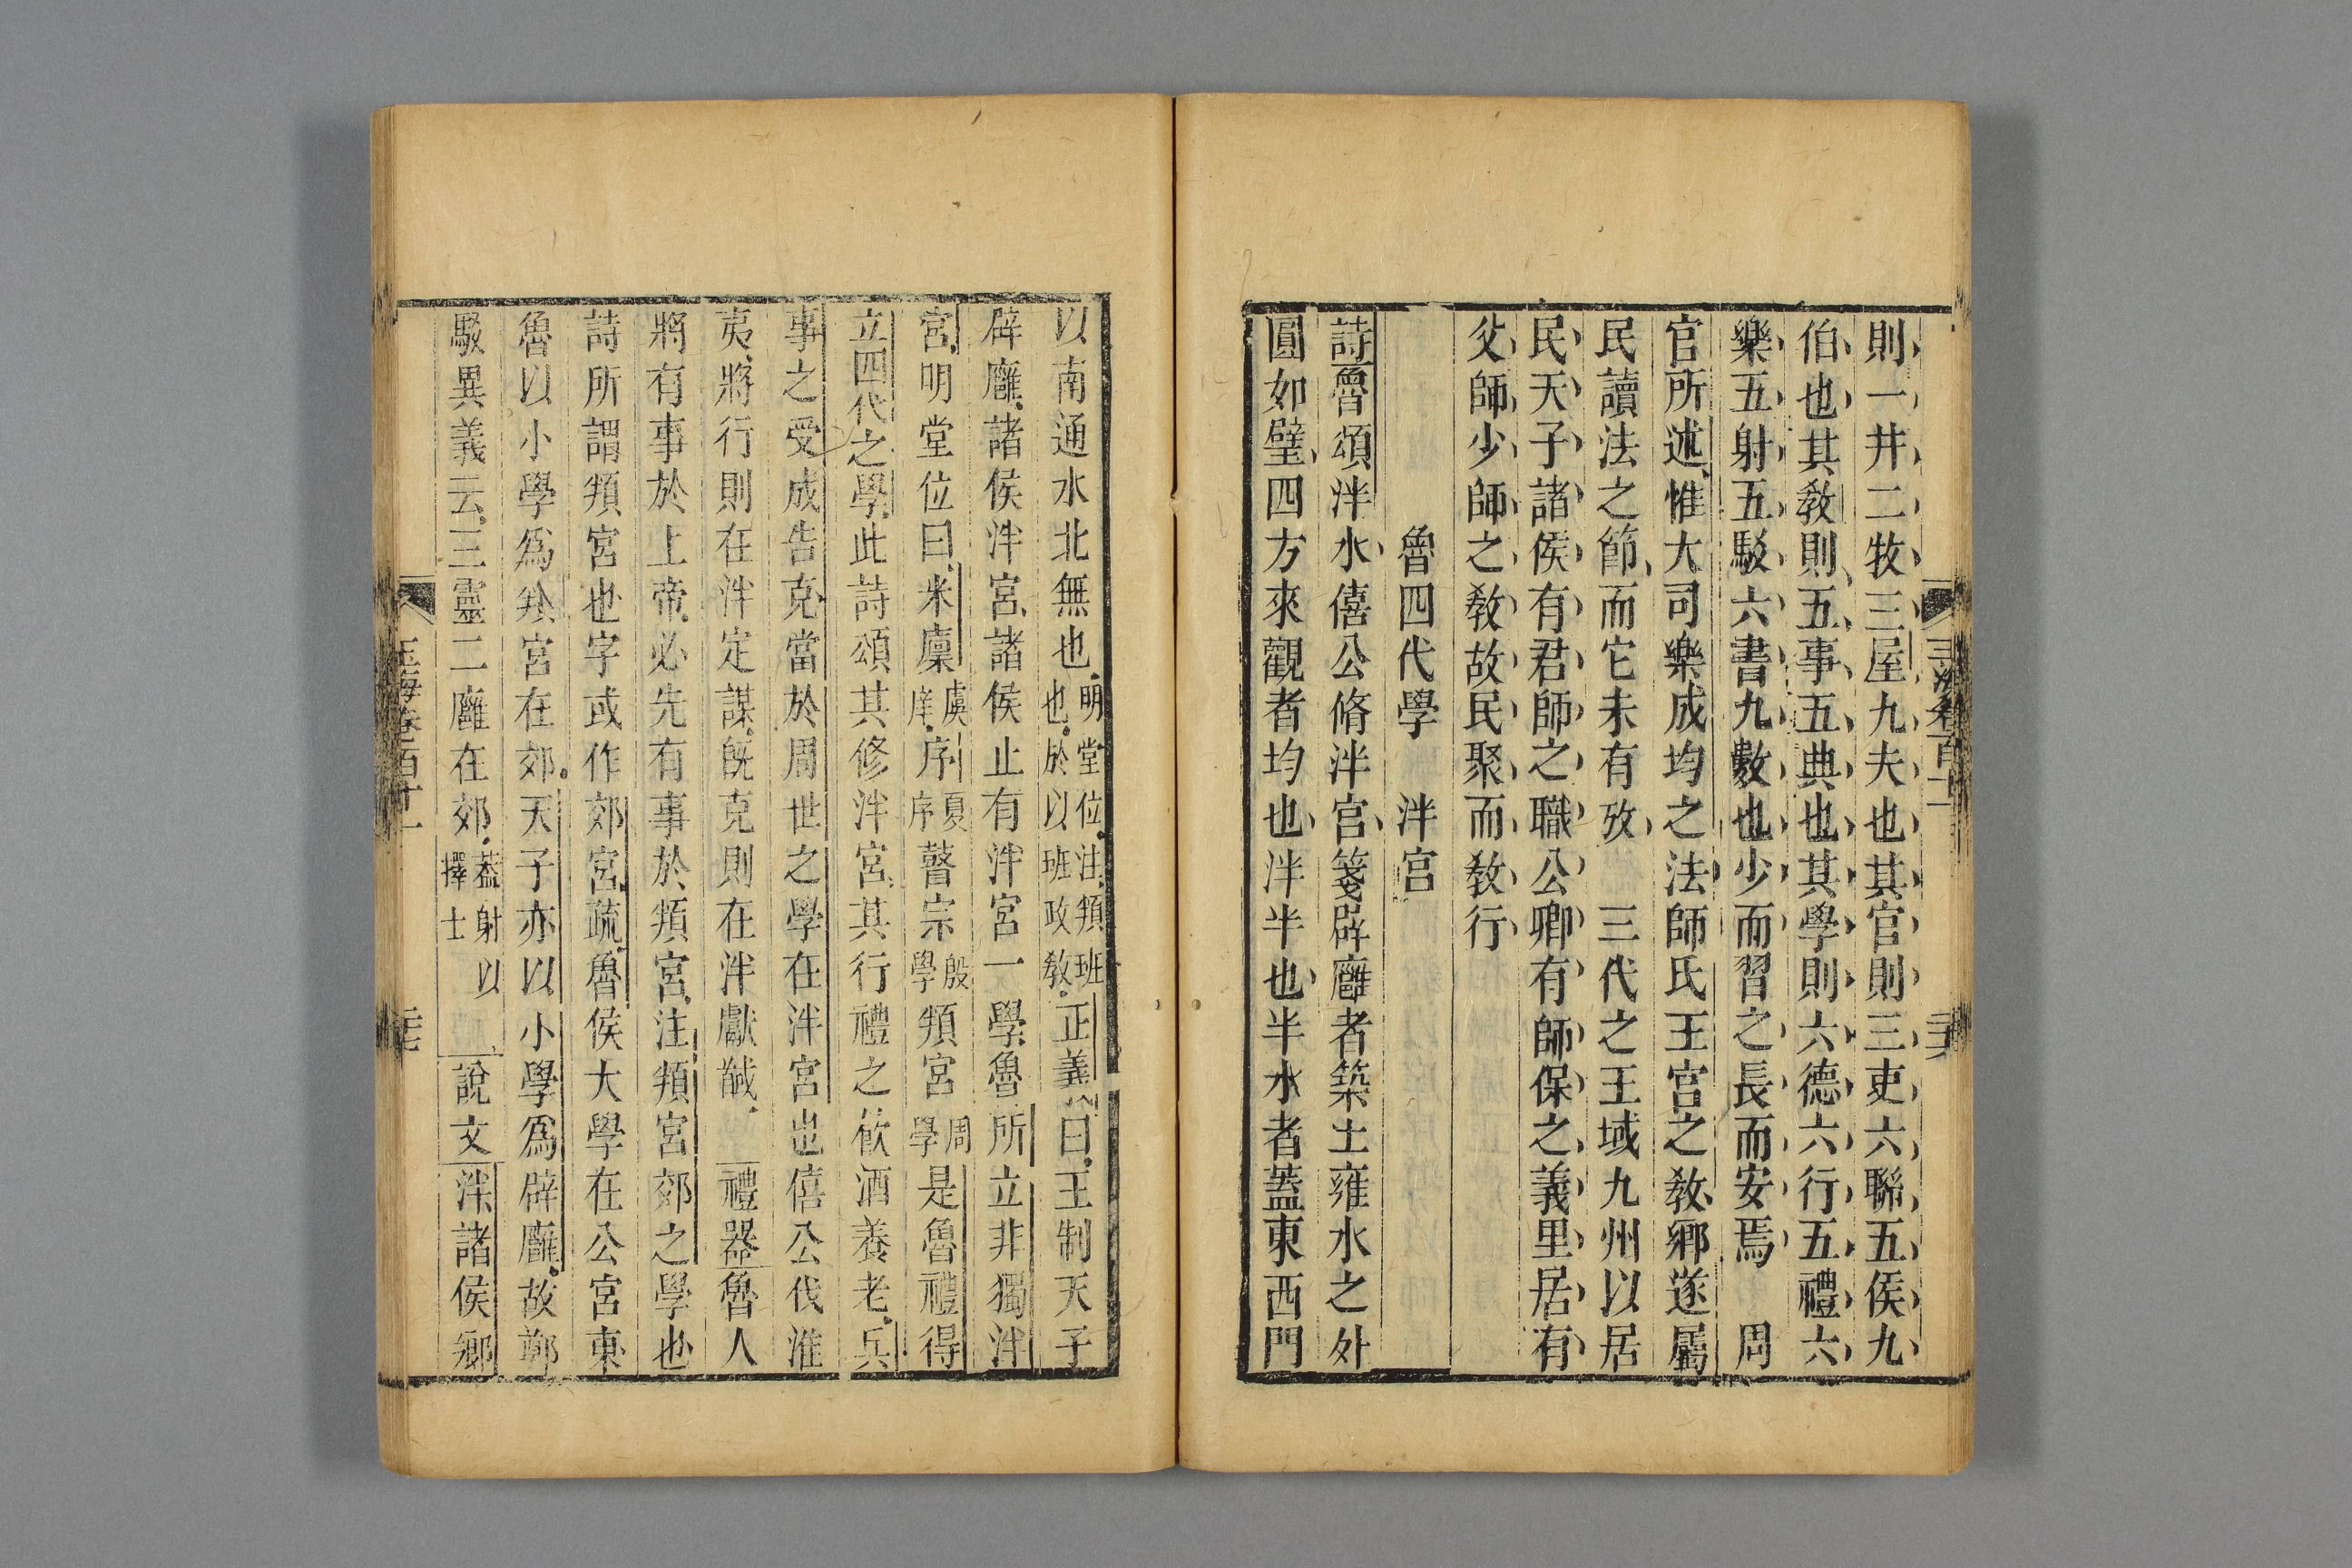 則一井二牧三屋九夫也其官則三吏六聯五侯九
伯也其敎則五事五典也其學則六德六行五禮六
樂五射五馭六書九數也少而習之長而安焉　周
官所述惟大司樂成均之法師氏王宮之敎鄉遂屬
民讀法之節而它未有攷　三代之王域九州以居
民天子諸侯有君師之職公卿有師保之義里居有
父師少師之敎故民聚而敎行
魯四代學　泮宮
詩魯頌泮水僖公脩泮宮箋辟廱者築土雍水之外
圓如璧四方來觀者均也泮半也半水者蓋東西門
以南通水北無也明堂位注頖班也於以班政敎正義曰王制天子
辟廱諸侯泮宮諸侯止有泮宮一學魯所立非獨泮
宮明堂位曰米廩虞庠序夏序瞽宗殷學頖宮周學是魯禮得
立四代之學此詩頌其修泮宮其行禮之飲酒養老兵
事之受成告克當於周世之學在泮宮也僖公伐淮
夷將行則在泮定謀旣克則在泮獻馘　禮器魯人
將有事於上帝必先有事於頖宮注頖宮郊之學也
詩所謂頖宮也字或作郊宮疏魯侯大學在公宮東
魯以小學爲頖宮在郊天子亦以小學爲辟廱故鄭
駁異義云三靈二廱在郊蓋射以擇士　說文泮諸侯鄉
玉海卷百十一